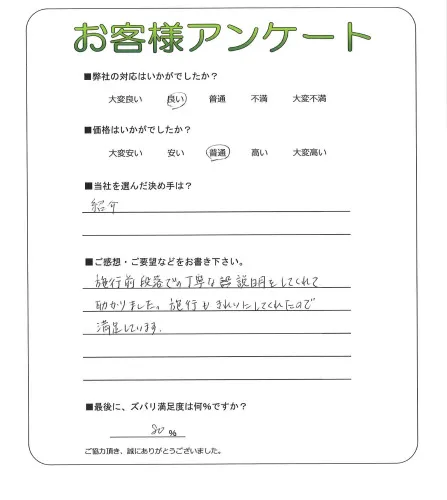 お客様アンケート
■弊社の対応はいかがでしたか?
大変良い 良い 普通 不満 大変不満
■価格はいかがでしたか?
大変安い 安い 普通 高い 大変高い
■当社を選んだ決め手は?
紹介
■ご感想・ご要望などをお書き下さい。
施行前段落での丁寧な説明をしてくれて
助かりました。施行もきれいにしてくれたので
満足しています。
■最後に、ズバリ満足度は何%ですか?
80 %
ご協力頂き、誠にありがとうございました。